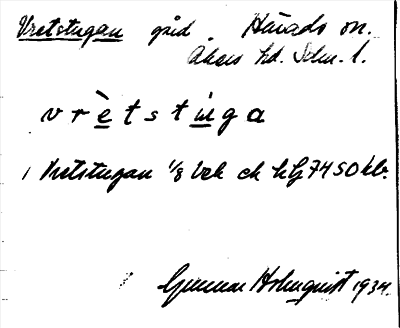 Vretstugan gård. Härads sn.
Åkers hd. Södm. l.
vrètstùga
Vretstugan 1/8 bek ch hf 7450 kb.
Gunnar Holmquist 1934.